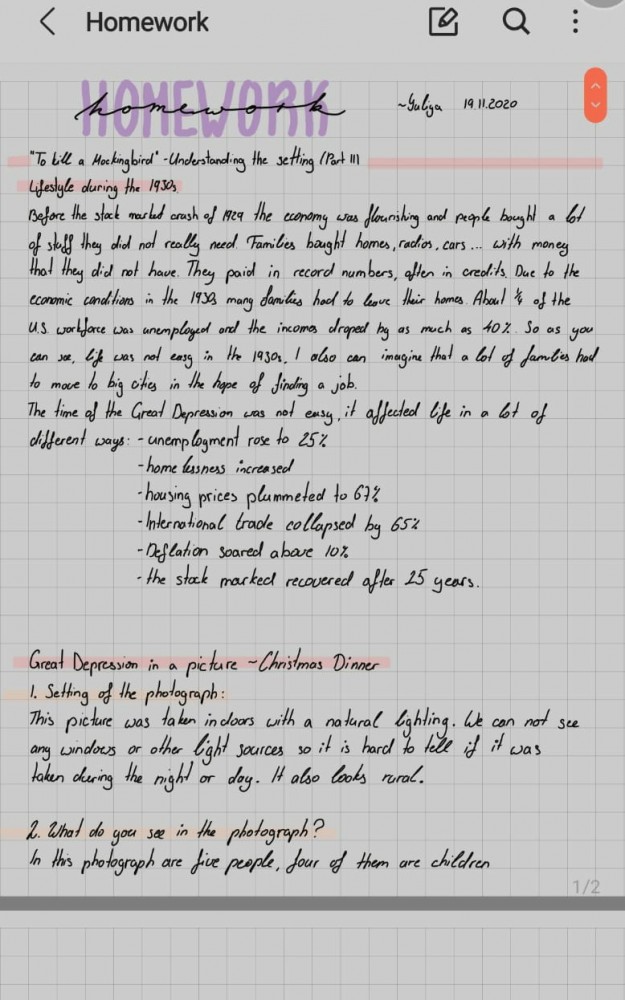 Homework
HOMEWORK
homework
~Yuliya 19.11.2020
"To kill a Mockingbird" - Understanding the setting (Part II)
Lifestyle during the 1930s
Before the stock marked crash of 1929 the economy was flourishing and people bought a lot
of stuff they did not really need. Families bought homes, radios, cars ... with money
that they did not have. They paid in record numbers, often in credits. Due to the
economic conditions in the 1930s many families had to leave their homes. About ¼ of the
U.S. workforce was unemployed and the incomes droped by as much as 40%. So as you
can see, life was not easy in the 1930s. I also can imagine that a lot of families had
to move to big cities in the hope of finding a job.
The time of the Great Depression was not easy, it affected life in a lot of
different ways: - unemployment rose to 25%
- home lessness increased
- housing prices plummeted to 67%
- International trade collapsed by 65%
- Deflation soared above 10%
- the stock marked recovered after 25 years.
Great Depression in a picture ~ Christmas Dinner
1. Setting of the photograph:
This picture was taken indoors with a natural lighting. We can not see
any windows or other light sources so it is hard to tell if it was
taken during the night or day. It also looks rural.
2. What do you see in the photograph?
In this photograph are five people, four of them are children
1/2